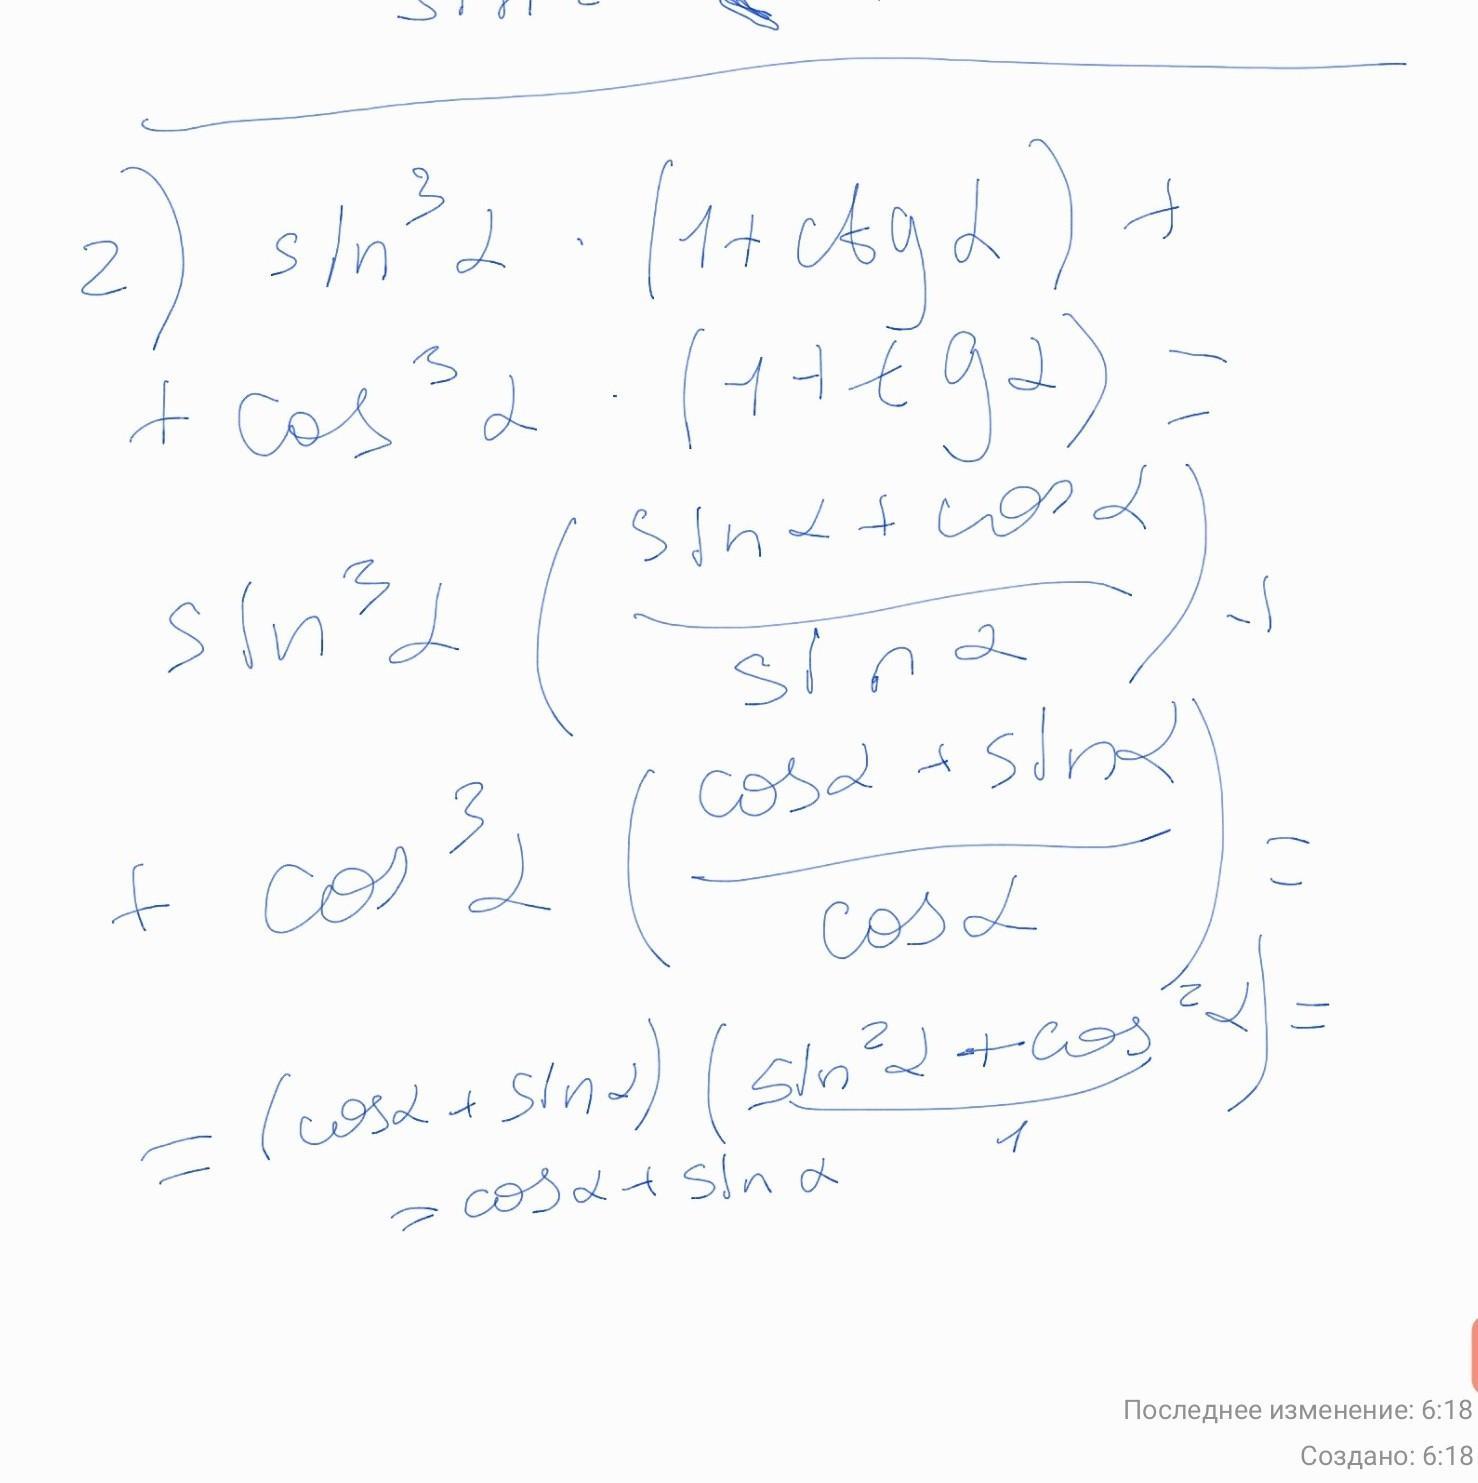 2) sin³α · (1+ctgα) +
+ cos³α · (1+tgα) =
sin³α ( (sinα + cosα) / sinα ) +
+ cos³α ( (cosα + sinα) / cosα ) =
= (cosα + sinα) (sin²α + cos²α) =
1
= cosα + sinα
Последнее изменение: 6:18
Создано: 6:18